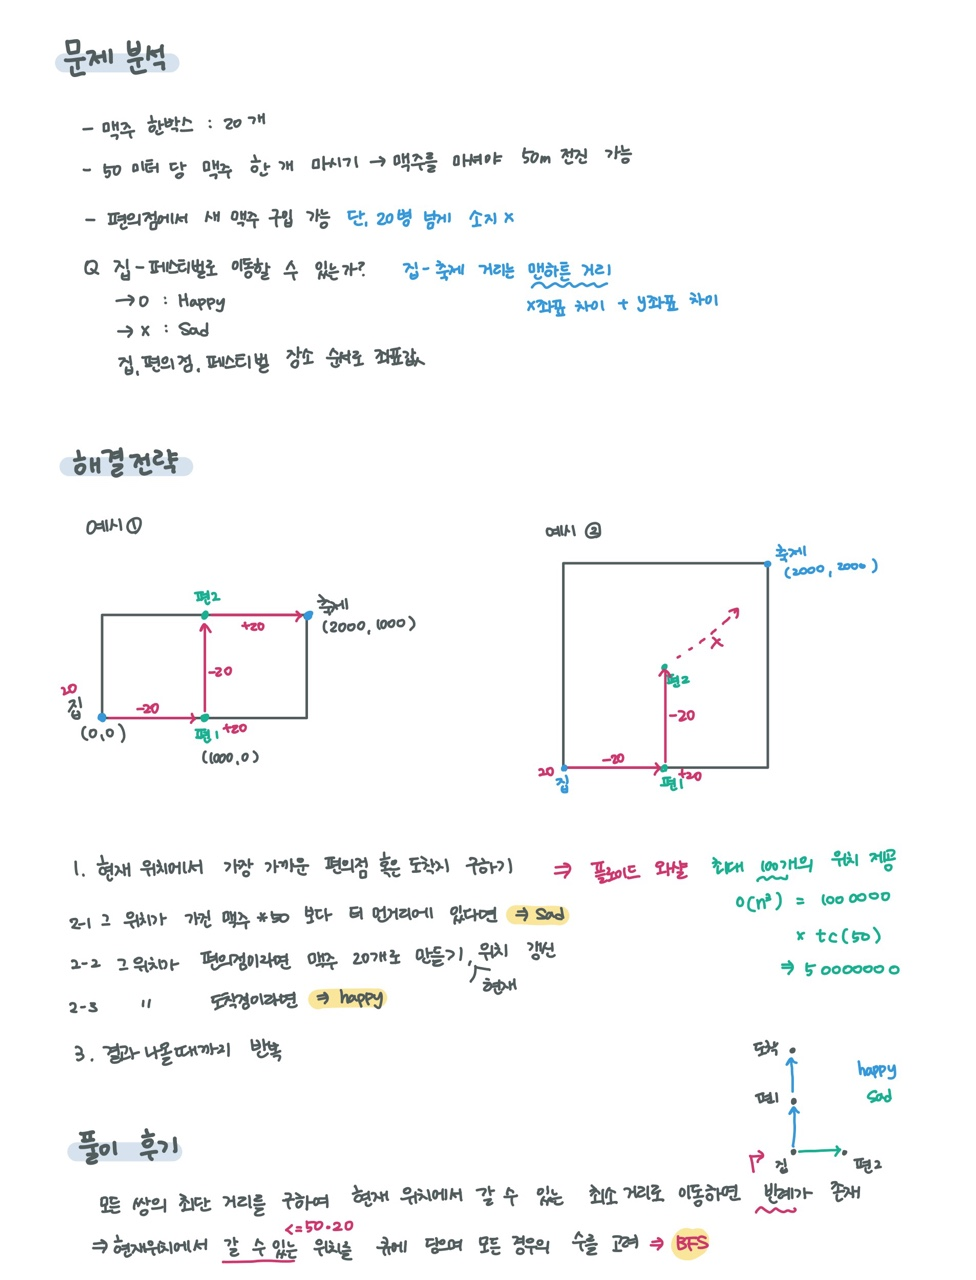 문제 분석
- 맥주 한박스 : 20개
- 50미터 당 맥주 한 개 마시기 → 맥주를 마셔야 50m 전진 가능
- 편의점에서 새 맥주 구입 가능 단, 20병 넘게 소지 x
Q 집-페스티벌로 이동할 수 있는가? 집-축제 거리는 맨하튼 거리
→ O : Happy x좌표 차이 + y좌표 차이
→ x : Sad
집, 편의점, 페스티벌 장소 순서로 좌표값
해결전략
예시 ①
편2
+20
축제
(2000, 1000)
-20
20
집
-20
(0,0)
편1 +20
(1000,0)
예시 ②
축제
(2000, 2000)
x
편2
-20
-20
20
집
편1 +20
1. 현재 위치에서 가장 가까운 편의점 혹은 도착지 구하기 ⇒ 플로이드 와샬 최대 100개의 위치 제공
O(n³) = 1000000
x tc(50)
⇒ 50000000
2-1 그 위치가 가진 맥주 *50 보다 더 먼거리에 있다면 ⇒ sad
2-2 그 위치가 편의점이라면 맥주 20개로 만들기, 위치 갱신
현재
2-3 " 도착점이라면 ⇒ happy
3. 결과 나올때까지 반복
도착
편1
집
편2
happy
sad
풀이 후기
모든 쌍의 최단 거리를 구하여 현재 위치에서 갈 수 있는 최소 거리로 이동하면 반례가 존재
<=50·20
⇒ 현재위치에서 갈 수 있는 위치를 큐에 담으며 모든 경우의 수를 고려 ⇒ BFS